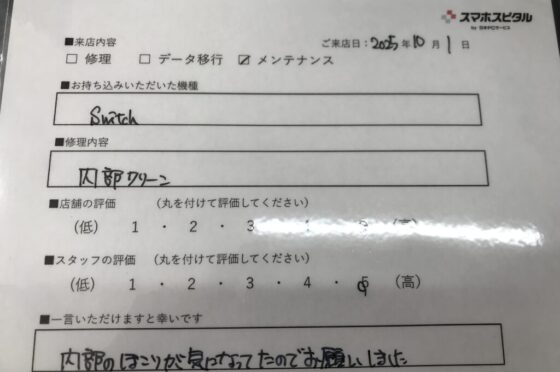 スマホスピタル
by 日本PCサービス
■来店内容
ご来店日:2025年10月1日
□ 修理 □ データ移行 ☑ メンテナンス
■お持ち込みいただいた機種
Switch
■修理内容
内部クリーン
■店舗の評価 (丸を付けて評価してください)
(低) 1 ・ 2 ・ 3 (高)
■スタッフの評価 (丸を付けて評価してください)
(低) 1 ・ 2 ・ 3 ・ 4 ・ 5 (高)
■一言いただけますと幸いです
内部のほこりが気になってたのでお願いしました